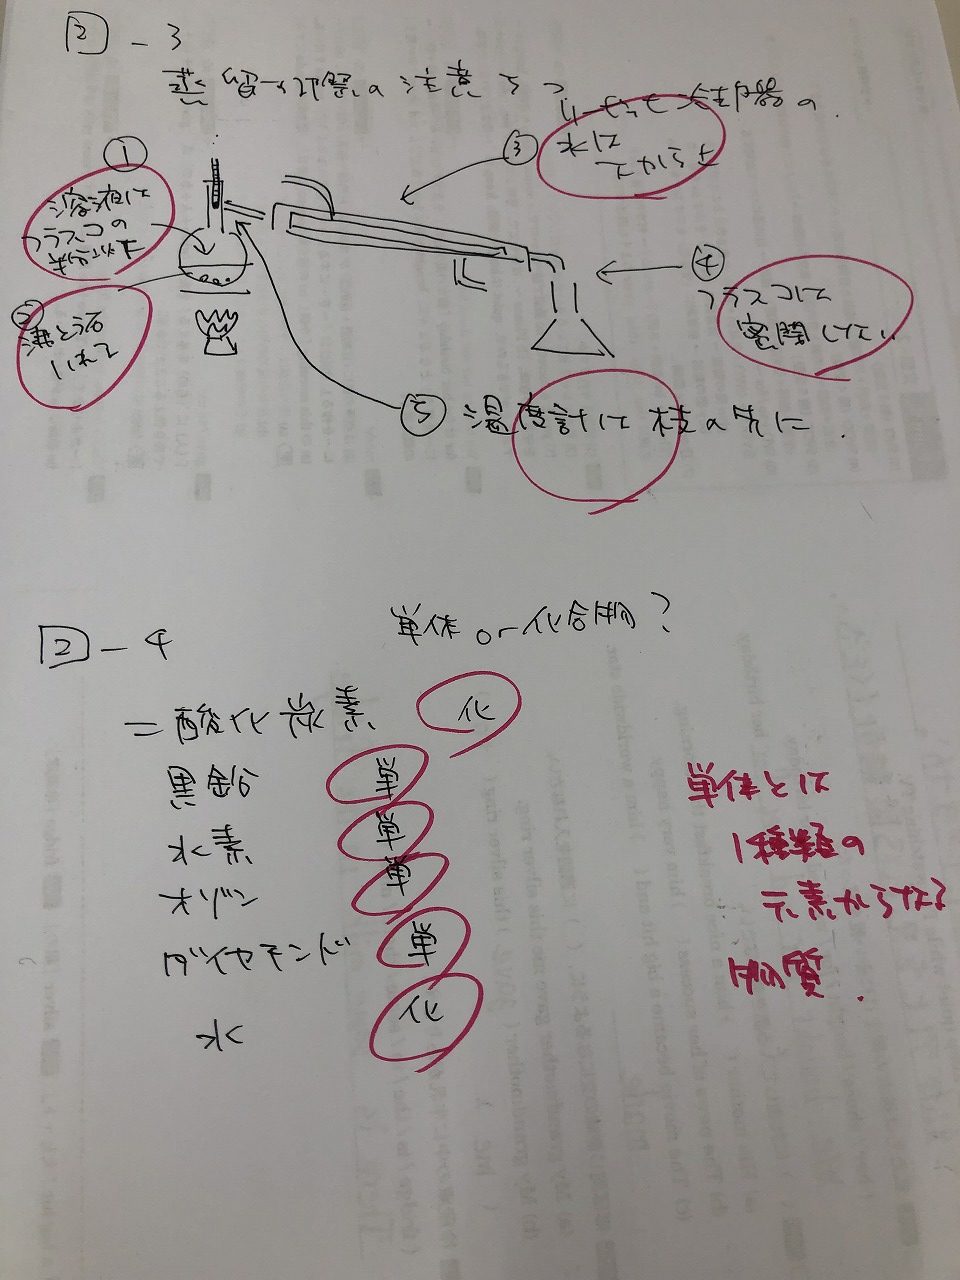 2 - 3
蒸留の装置の注意 5つ
リービッヒ冷却器の
③ 水は
下から上
①
溶液は
フラスコの
半分以下
②
沸とう石
いれて
④
フラスコは
密閉しない
⑤ 温度計は枝の先に.
2 - 4
単体 or 化合物?
二酸化炭素 化
黒鉛 単
水素 単
オゾン 単
ダイヤモンド 単
水 化
単体とは
1種類の
元素からなる
物質.